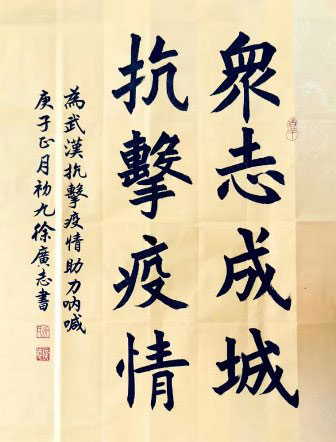 衆志成城
抗擊疫情
為武漢抗擊疫情助力吶喊
庚子正月初九徐廣志書